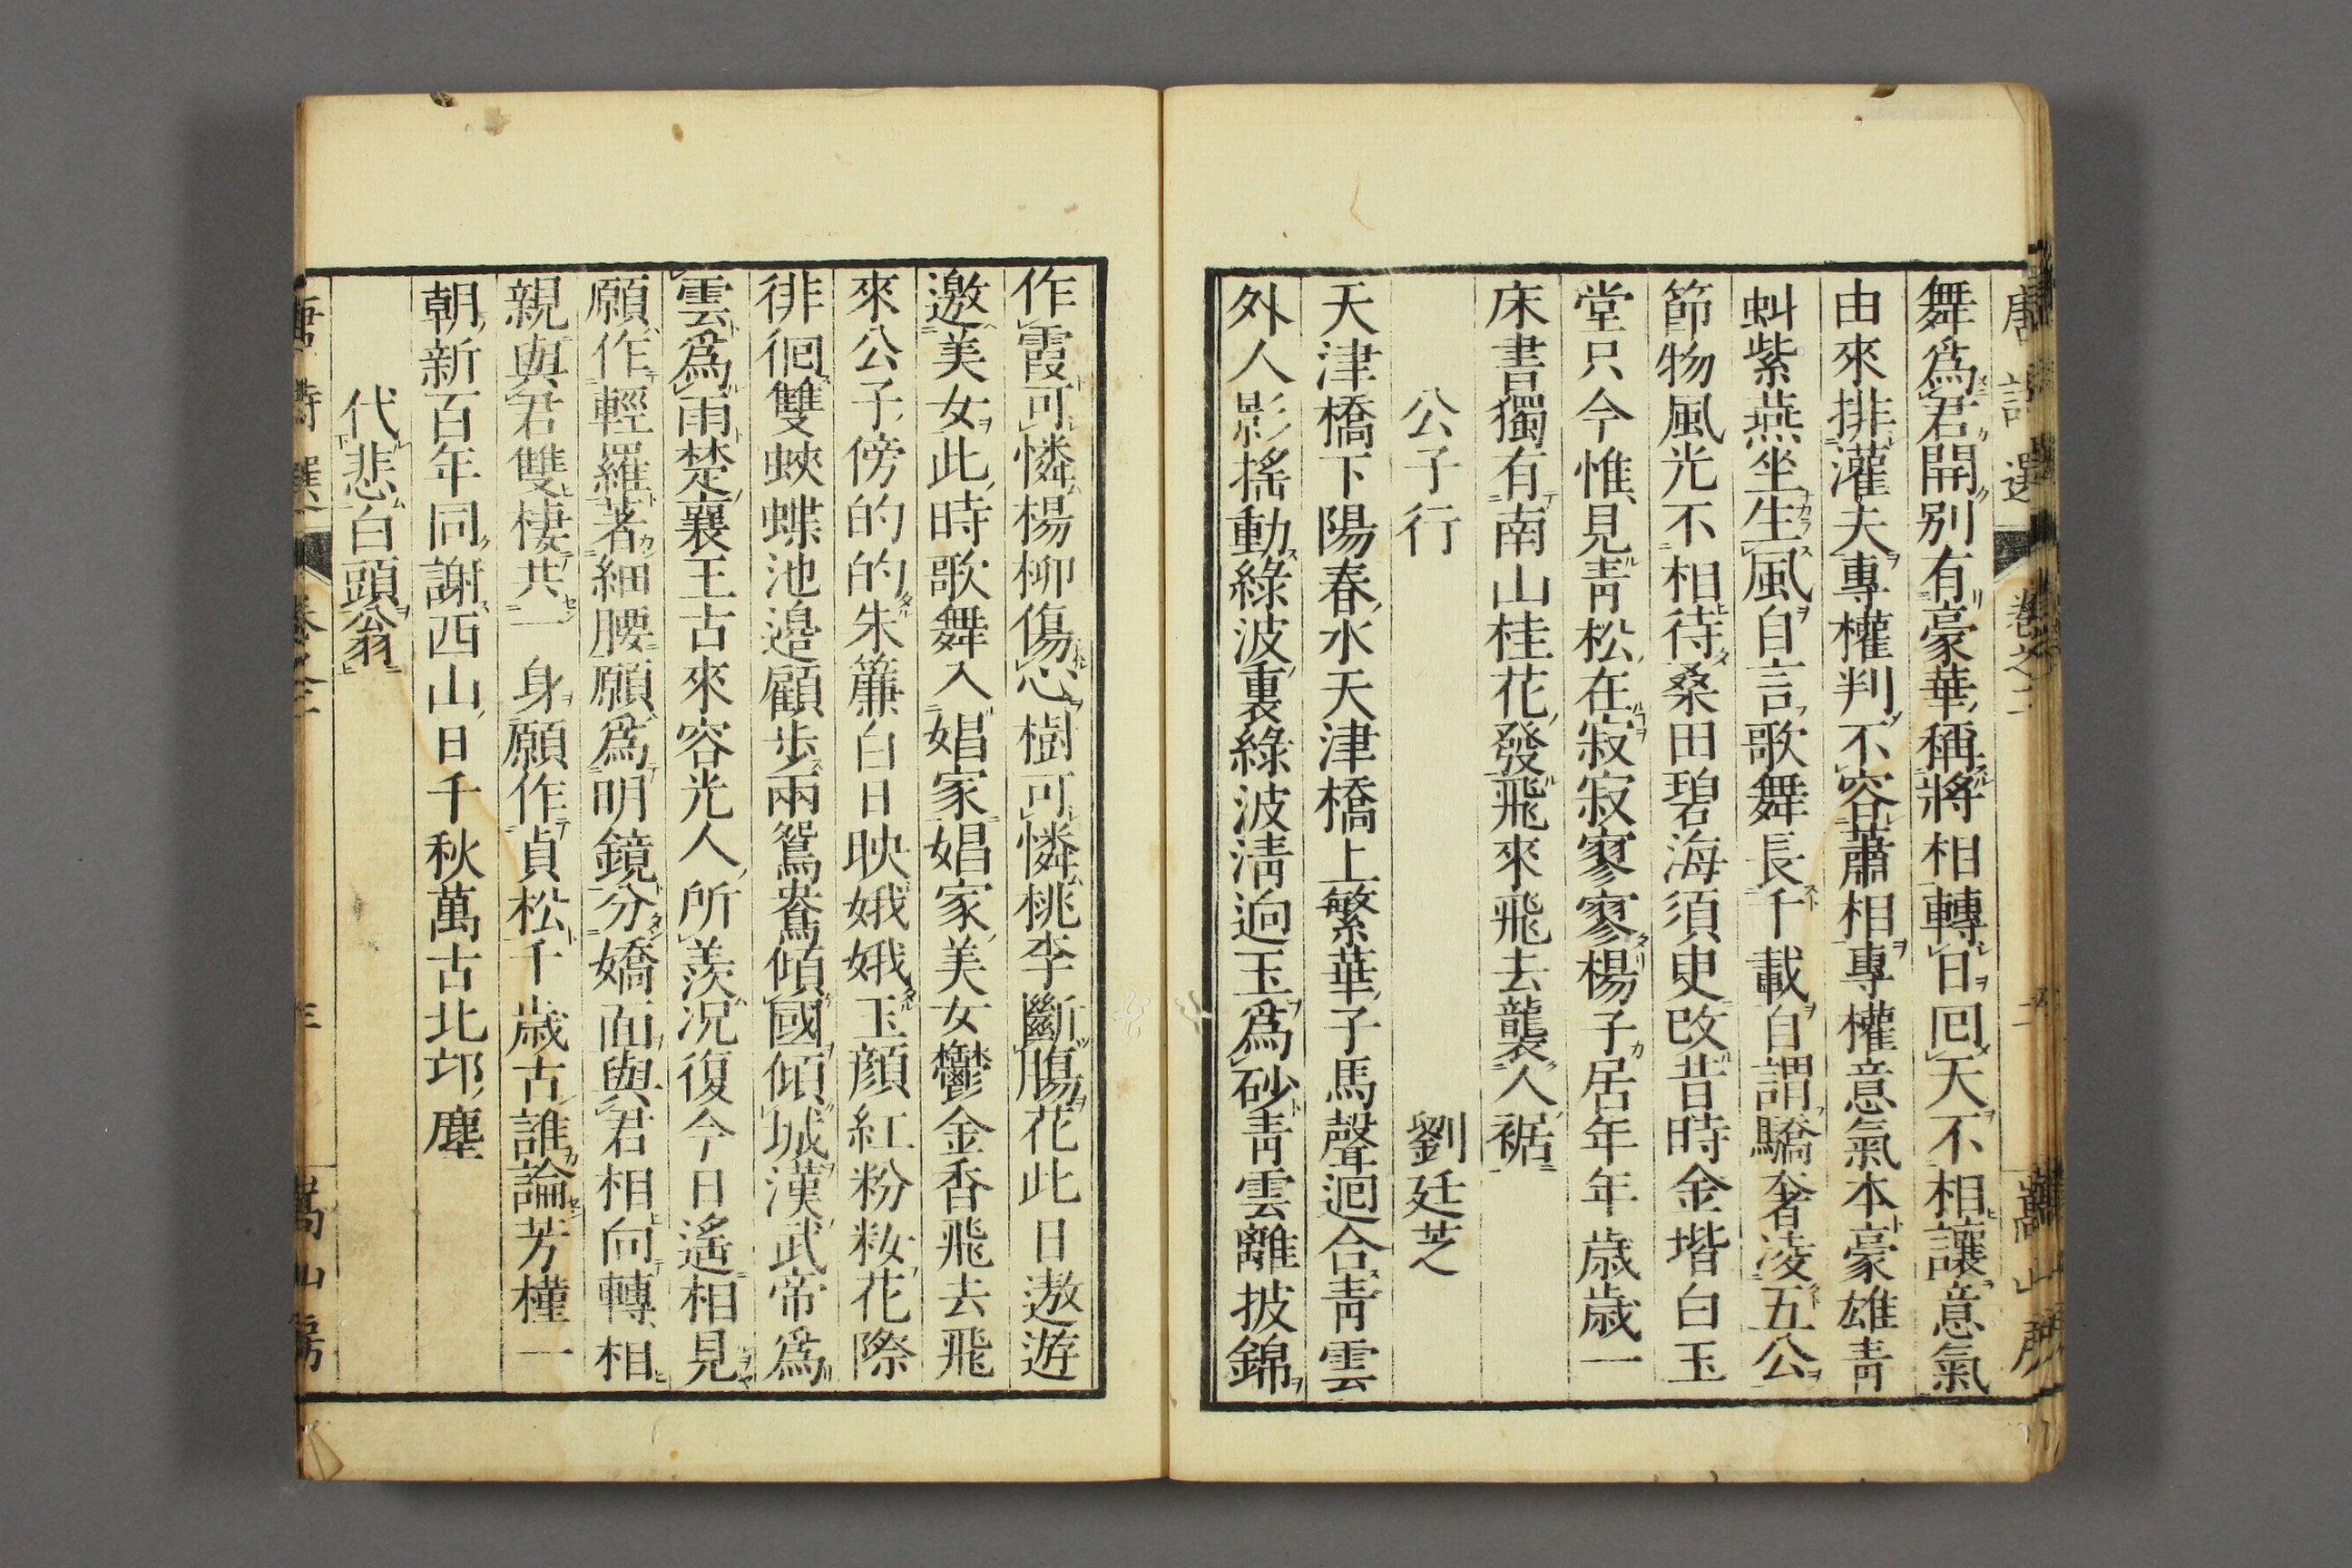 唐詩選 卷之二 嵩山房
舞爲君開別有豪華稱將相轉日回天不相讓意氣
由來排灌夫專權判不容蕭相專權意氣本豪雄靑
虯紫燕坐生風自言歌舞長千載自謂驕奢凌五公
節物風光不相待桑田碧海須臾改昔時金堦白玉
堂只今惟見靑松在寂寂寥寥楊子居年年歲歲一
床書獨有南山桂花發飛來飛去襲人裾
公子行 劉廷芝
天津橋下陽春水天津橋上繁華子馬聲迴合靑雲
外人影搖動綠波裏綠波淸逈玉爲砂靑雲離披錦
作霞可憐楊柳傷心樹可憐桃李斷膓花此日遨遊
邀美女此時歌舞入娼家娼家美女鬱金香飛去飛
來公子傍的的朱簾白日映娥娥玉顔紅粉粧花際
徘徊雙蛺蝶池邊顧步兩鴛鴦傾國傾城漢武帝爲
雲爲雨楚襄王古來容光人所羨況復今日遙相見
願作輕羅著細腰願爲明鏡分嬌面與君相向轉相
親與君雙棲共一身願作貞松千歲古誰論芳槿一
朝新百年同謝西山日千秋萬古北邙塵
代悲白頭翁
唐詩選 卷之二 嵩山房